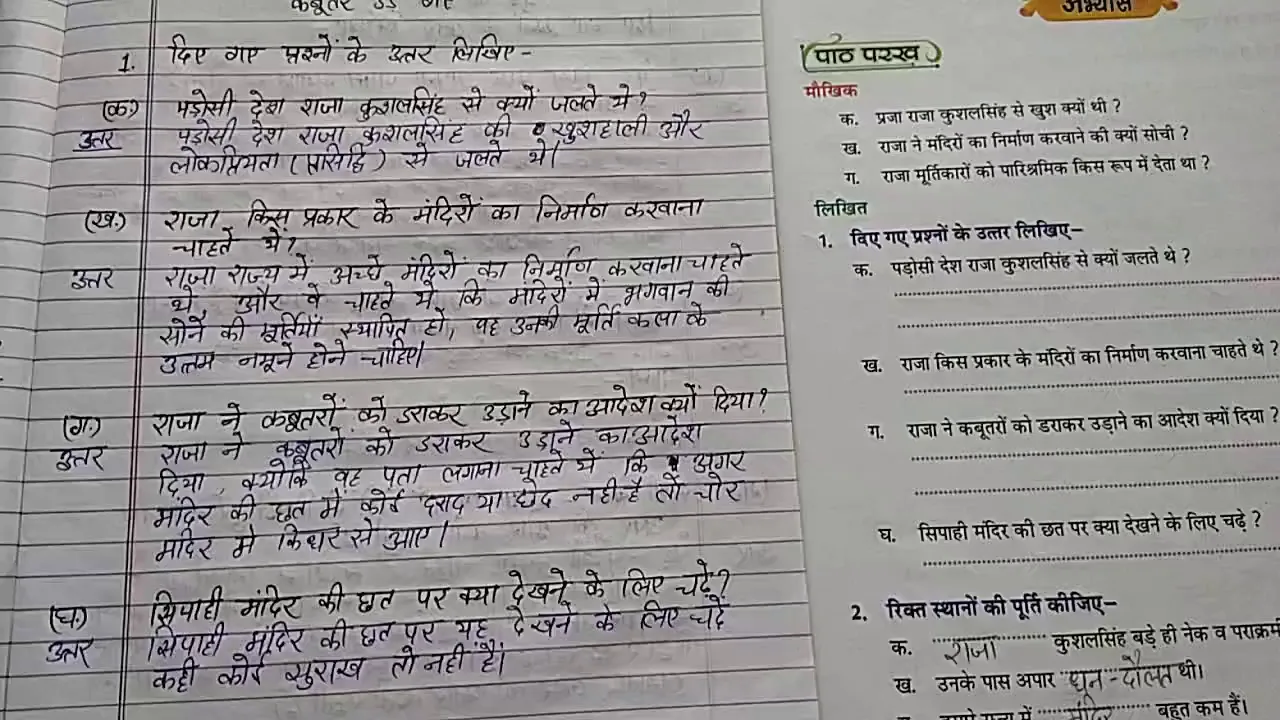 कबूतर उड़ गए
1. दिए गए प्रश्नों के उत्तर लिखिए -
(क) पड़ोसी देश राजा कुशलसिंह से क्यों जलते थे?
उत्तर पड़ोसी देश राजा कुशलसिंह की खुशहाली और
लोकप्रियता (प्रसिद्धि) से जलते थे।
(ख.) राजा किस प्रकार के मंदिरों का निर्माण करवाना
चाहते थे?
उत्तर राजा राज्य में अच्छे मंदिरों का निर्माण करवाना चाहते
थे और वे चाहते थे कि मंदिरों में भगवान की
सोने की मूर्तियाँ स्थापित हो, वह उनकी मूर्ति कला के
उत्तम नमूने होने चाहिए।
(ग.) राजा ने कबूतरों को डराकर उड़ाने का आदेश क्यों दिया?
उत्तर राजा ने कबूतरों को डराकर उड़ाने का आदेश
दिया, क्योंकि वह पता लगाना चाहते थे कि अगर
मंदिर की छत में कोई दराद या छेद नही है तो चोर
मंदिर मे किधर से आए।
(घ.) सिपाही मंदिर की छत पर क्या देखने के लिए चढ़े?
उत्तर सिपाही मंदिर की छत पर यह देखने के लिए चढ़े
कही कोई सुराख तो नहीं है।
अभ्यास
पाठ परख
मौखिक
क. प्रजा राजा कुशलसिंह से खुश क्यों थी ?
ख. राजा ने मंदिरों का निर्माण करवाने की क्यों सोची ?
ग. राजा मूर्तिकारों को पारिश्रमिक किस रूप में देता था ?
लिखित
1. दिए गए प्रश्नों के उत्तर लिखिए–
क. पड़ोसी देश राजा कुशलसिंह से क्यों जलते थे ?
ख. राजा किस प्रकार के मंदिरों का निर्माण करवाना चाहते थे ?
ग. राजा ने कबूतरों को डराकर उड़ाने का आदेश क्यों दिया ?
घ. सिपाही मंदिर की छत पर क्या देखने के लिए चढ़े ?
2. रिक्त स्थानों की पूर्ति कीजिए–
क. राजा कुशलसिंह बड़े ही नेक व पराक्रमी
ख. उनके पास अपार धन-दौलत थी।
मंदिर बहुत कम हैं।